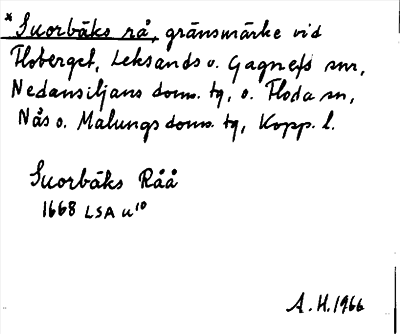 *Suorbäks rå, gränsmärke vid
Floberget, Leksands o. Gagnefs snr,
Nedansiljans doms. tg, o. Floda sn,
Nås o. Malungs doms. tg, Kopp. l.
Suorbäks Råå
1668 LSA u¹⁰
A. H. 1966